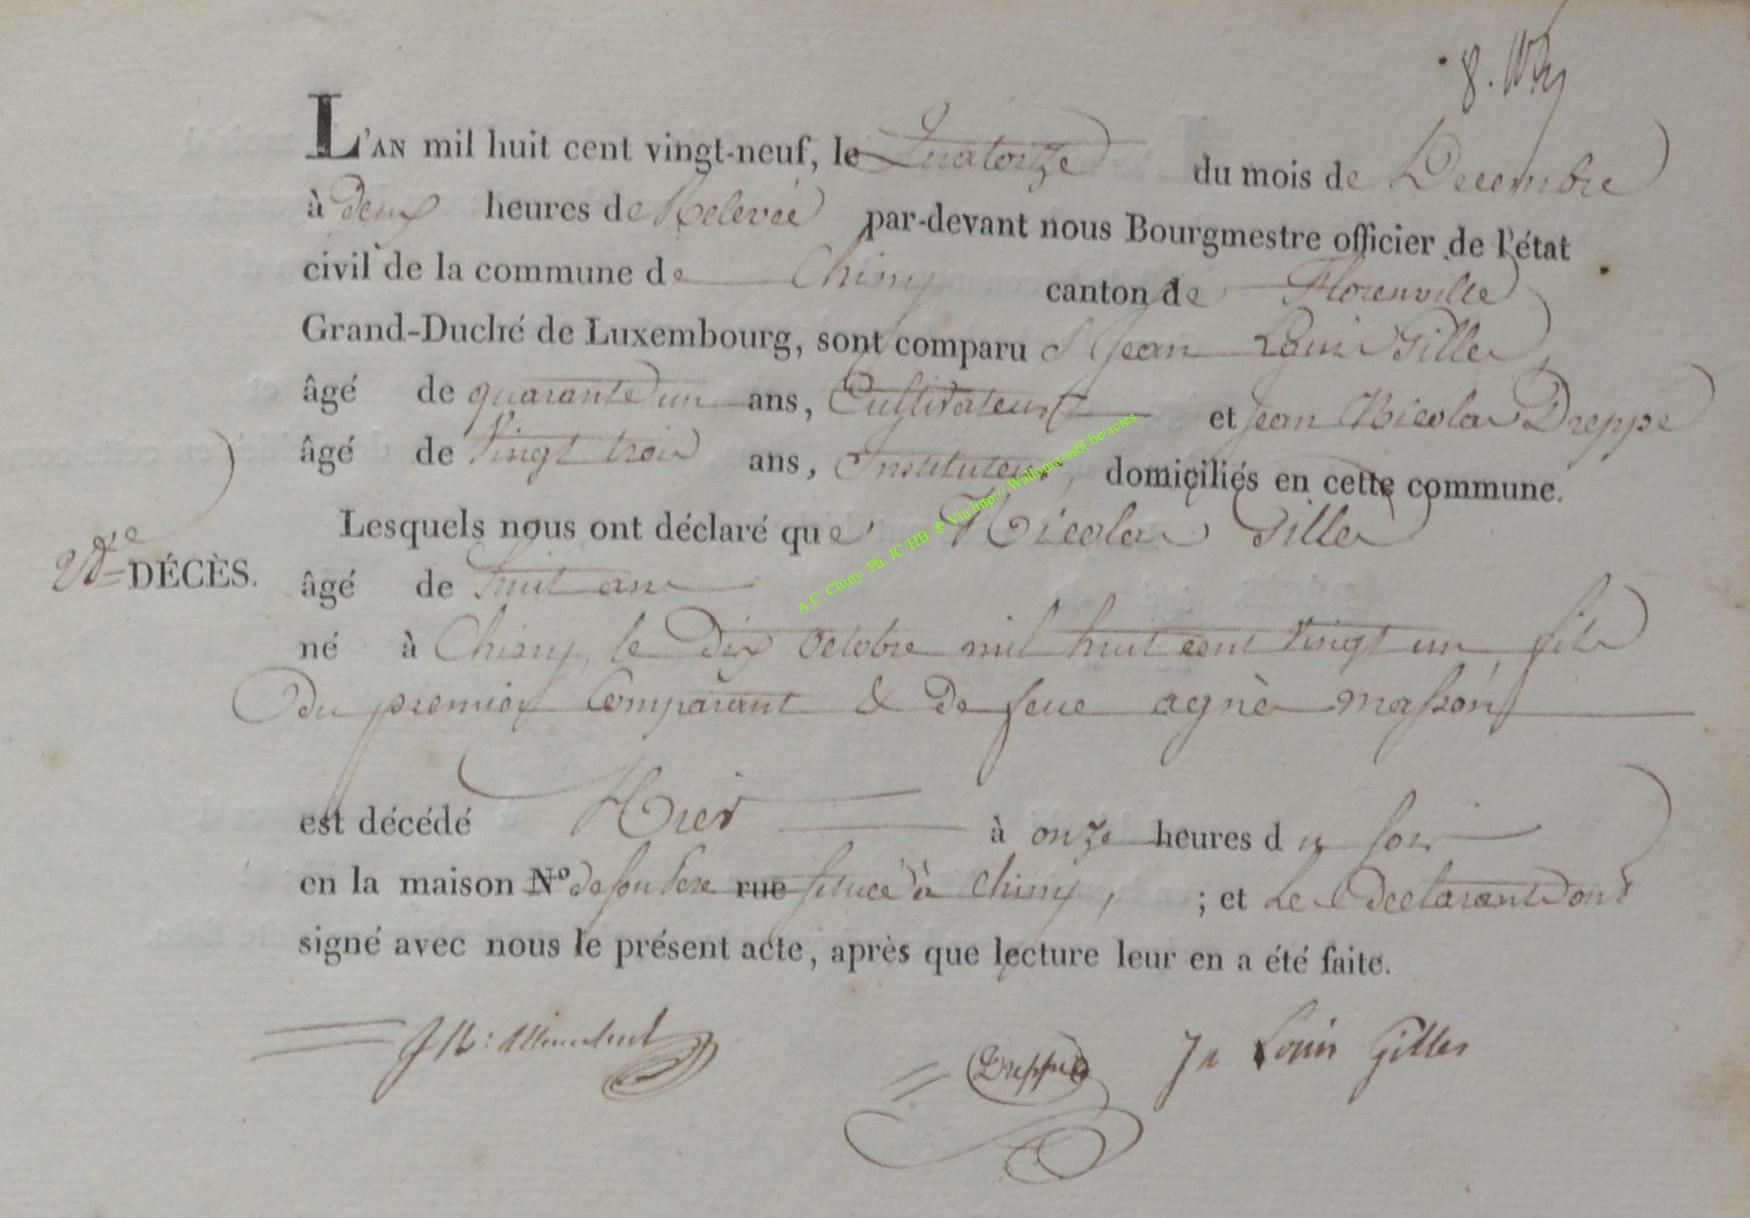 8.
L'AN mil huit cent vingt-neuf, le Quatorze du mois de Decembre
à deux heures de Relevée par-devant nous Bourgmestre officier de l'état
civil de la commune de Chiny canton de Florenville
Grand-Duché de Luxembourg, sont comparu Jean Louis Gilles
âgé de quarante un ans, Cultivateur et Jean Nicolas Dreppe
âgé de Vingt trois ans, Instituteur, domiciliés en cette commune.
Lesquels nous ont déclaré que Nicolas Gilles
DÉCÈS. âgé de huit ans
né à Chiny, le Dix Octobre mil huit cent Vingt un fils
du premier Comparant & De feue agnès masson
est décédé Hier à onze heures du soir
en la maison N° de son Pere rue située à Chiny, ; et Les Declarants ont
signé avec nous le présent acte, après que lecture leur en a été faite.
Dreppe Jn Louis Gilles
A.C. Chiny Ph. JC/HB ® Via http:// Wallonia-asbl.be/actes